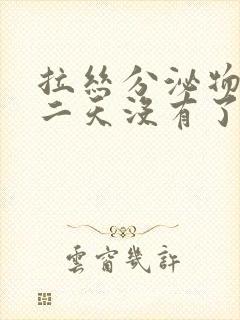 拉絲分泌物
二天沒有了
雲窗幾許